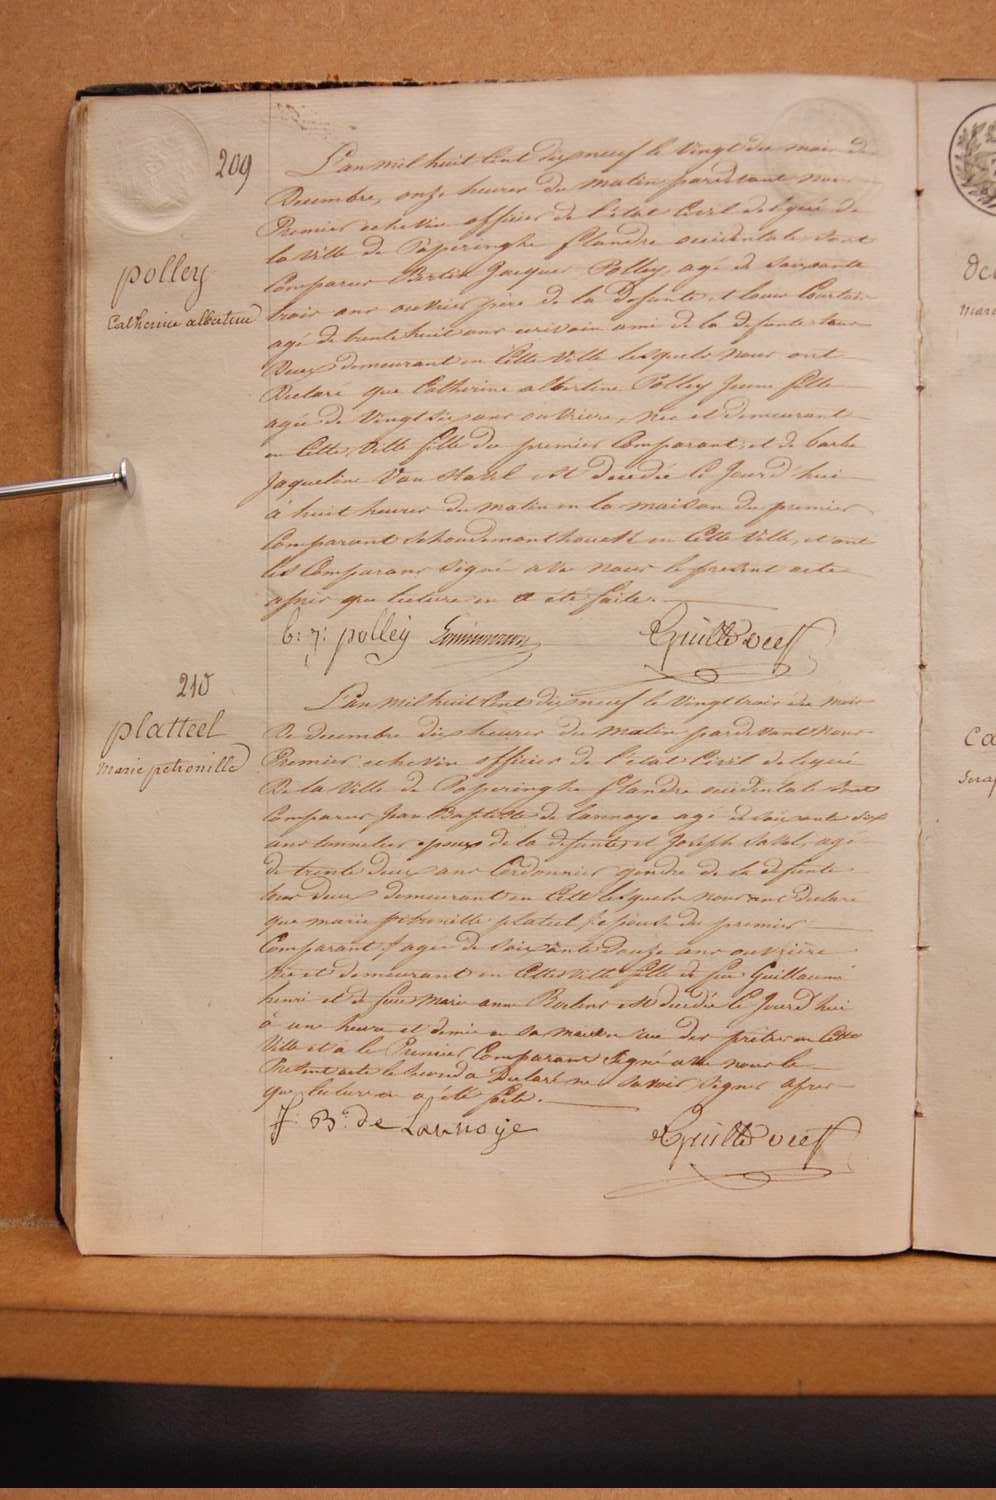 209
polley
Catherine albertine
L'an mil huit Cent dix neuf le Vingt du mois de
Decembre, onze heures du matin pardevant nous
Premier echevin officier de l'état Civil delegué de
la Ville de Poperinghe flandre occidentale, sont
Comparus Bertin Jacques Polley, agé de soixante
trois ans ouvrier père de la Defunte et Louis
agé de trente huit ans ecrivain ami de la defunte tous
Deux demeurant en Cette Ville lesquels nous ont
Declaré que Catherine albertine Polley Jeune fille
agée de Vingt six ans ouvriere, née et demeurant
en Cette Ville fille du premier Comparant, et de barbe
Jaqueline Van est decedée Ce Jourd'hui
à huit heures du matin en la maison du premier
Comparant en Cette Ville, et ont
les Comparans signé avec nous le present acte
après que lecture en a été faite.
b: j: polley
210
platteel
marie petronille
L'an mil huit Cent dix neuf le Vingt trois du mois
De decembre dix heures du matin pardevant nous
Premier echevin officier de l'etat Civil delegué
De la Ville de Poperinghe flandre occidentale sont
Comparus Jean Baptiste de Lannoye agé de soixante dix
ans tonnelier epoux de la defunte, et Joseph agé
de trente deux ans Cordonnier gendre de la defunte
tous deux demeurant en Cette lesquels nous ont declaré
que marie petronille platel epouse du premier
Comparant agée de soixante Douze ans ouvrière
née et demeurant en Cette Ville fille de feu Guillaume
henri et de feue marie anne est decedée Ce Jourd'hui
à une heure et demie en sa maison rue des prêtres en Cette
Ville et a le Premier Comparant signé avec nous le
Present acte le second a Declaré ne savoir signer après
que lecture a été faite.
J: B: de Lannoye